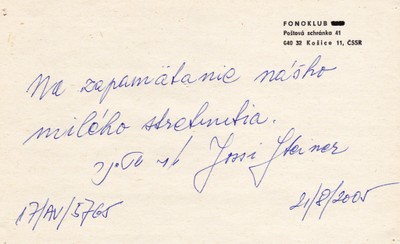 FONOKLUB
Poštová schránka 41
040 32 Košice 11, ČSSR
Na zapamätanie nášho
milého stretnutia.
Jossi Steiner
17/AV/5765
21/8/2005